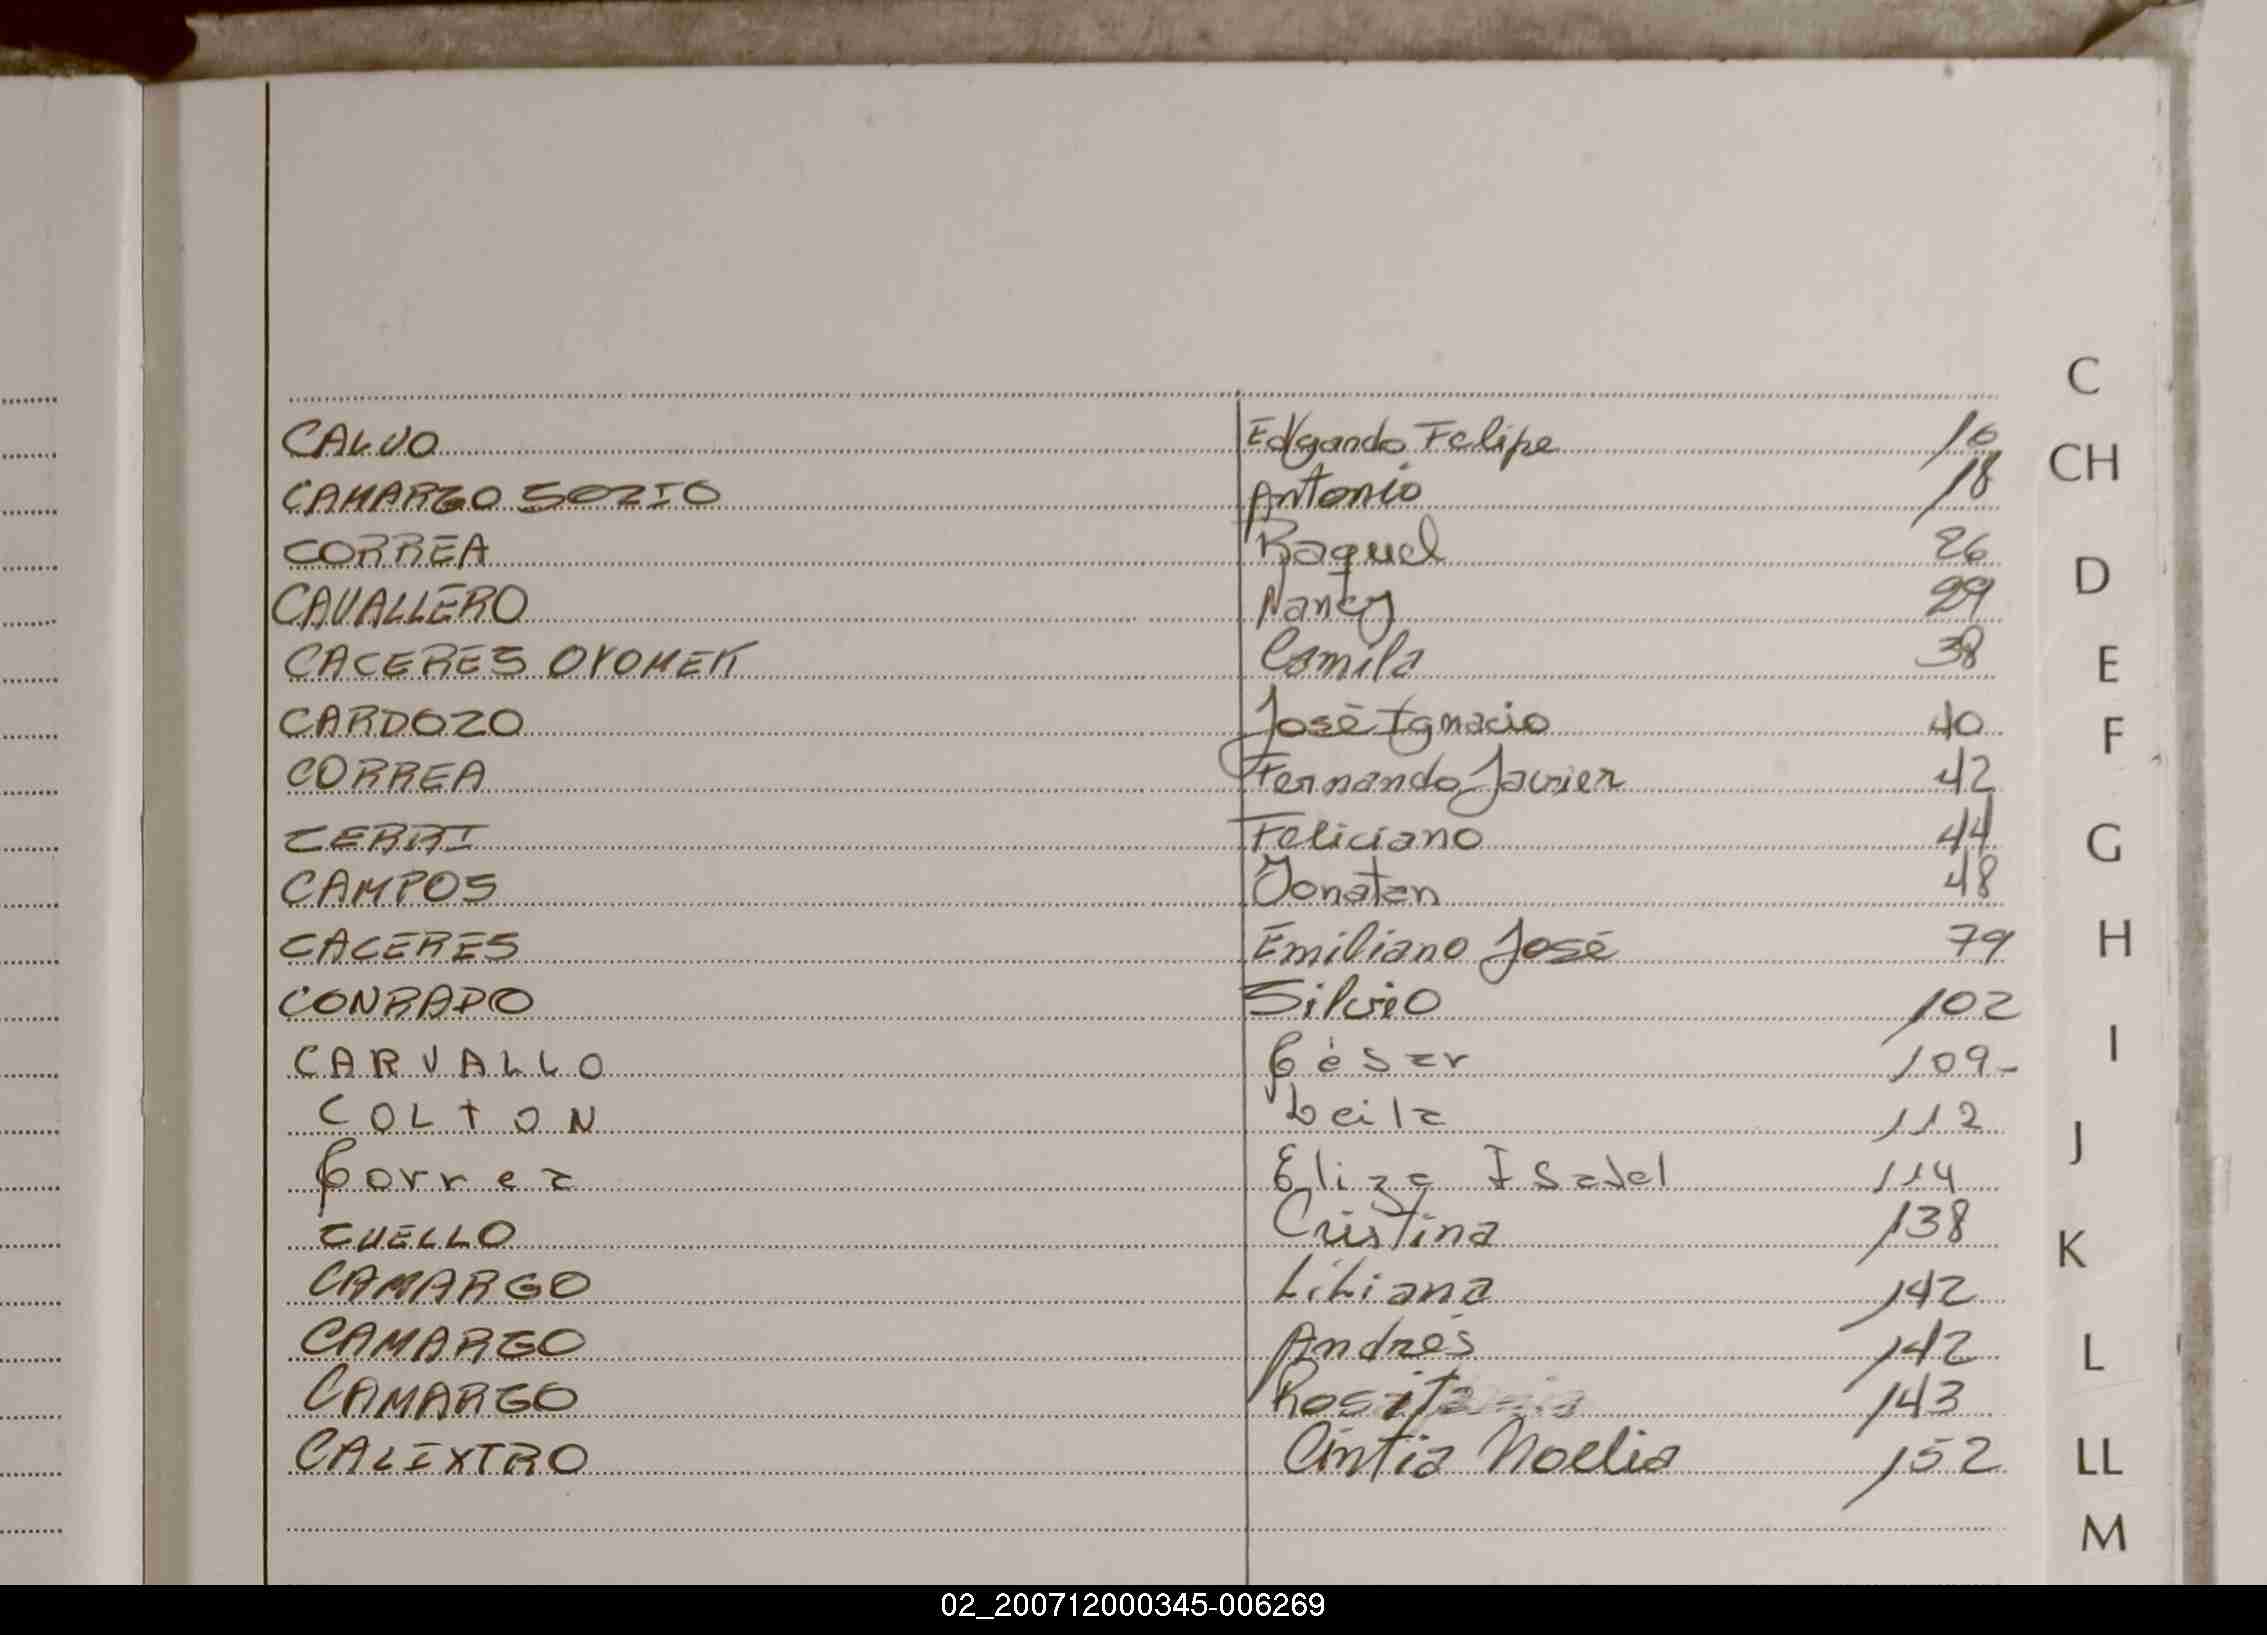 C
CALVO Edgardo Felipe 16
CH
CAMARGO SOZIO Antonio 18
CORREA Raquel 26
D
CAVALLERO Nancy 29
CACERES OYOMEK Camila 38
E
CARDOZO José Ignacio 40
F
CORREA Fernando Javier 42
CERRI Feliciano 44
G
CAMPOS Jonatan 48
CACERES Emiliano José 79
H
CONRADO Silvio 102
I
CARVALLO César 109-
COLTON Leila 112
J
Correa Eliza Isabel 114
CUELLO Cristina 138
K
CAMARGO Liliana 142
CAMARGO Andrés 142
L
CAMARGO Rosita 143
CALIXTRO Cintia Noelia 152
LL
M
02_200712000345-006269